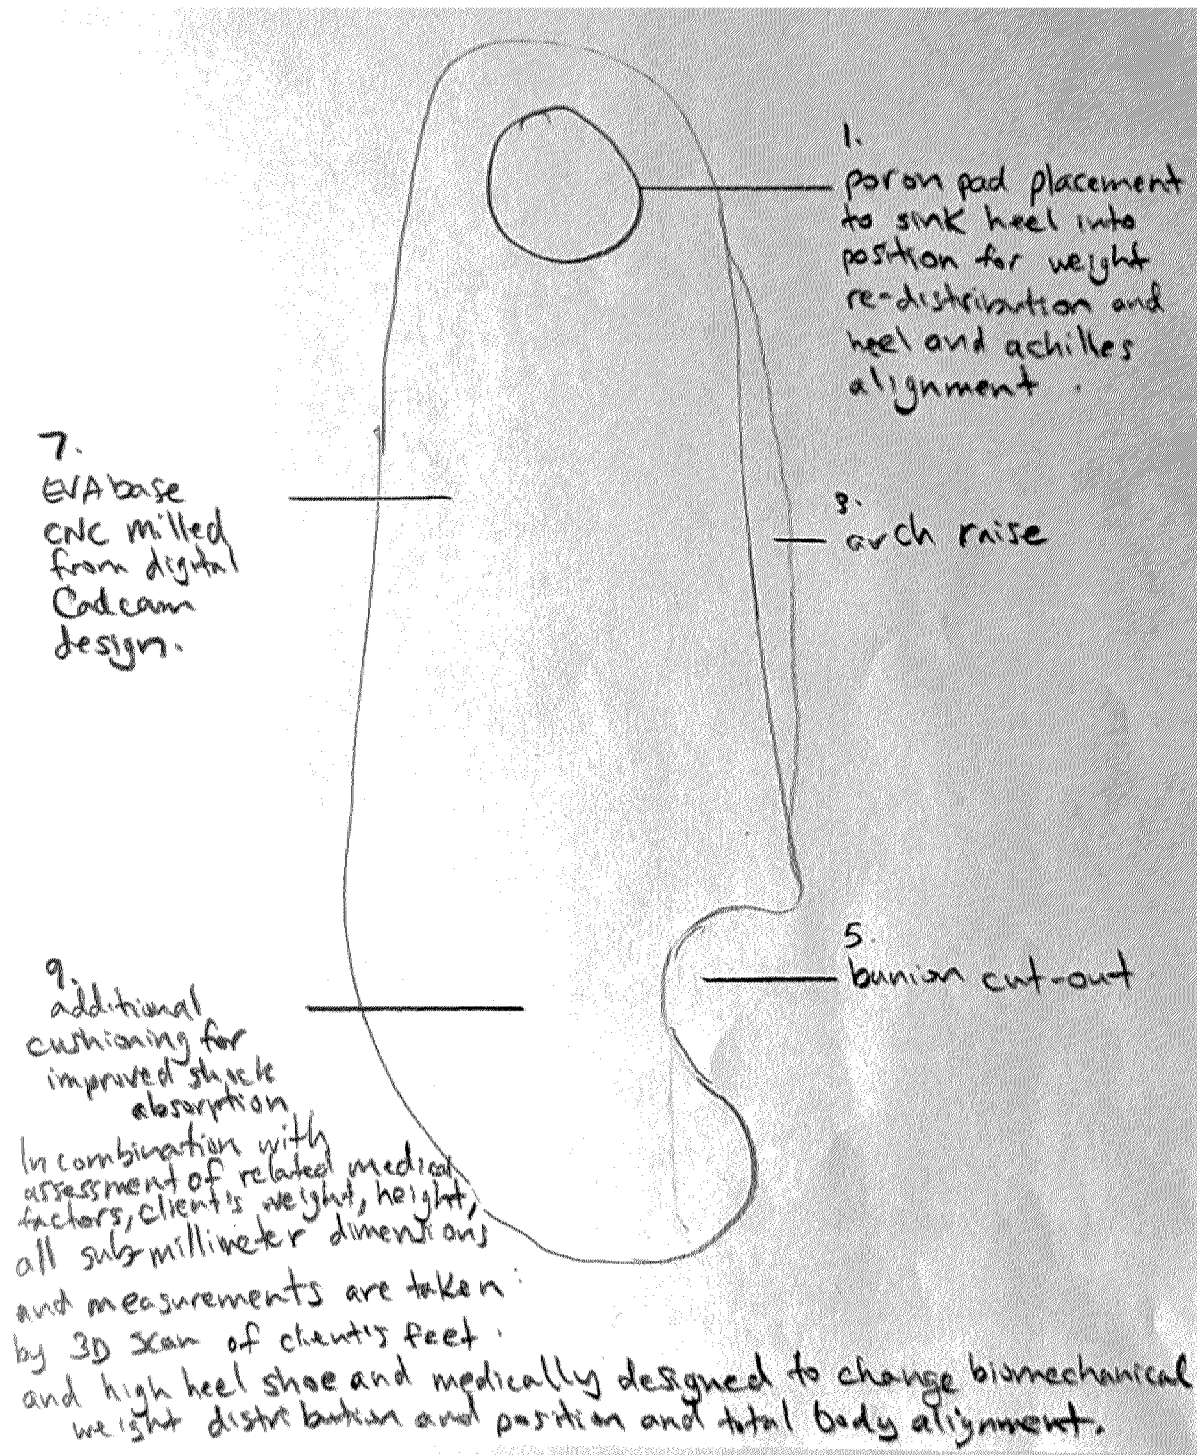 1.
poron pad placement
to sink heel into
position for weight
re-distribution and
heel and achilles
alignment.
3.
arch raise
5.
bunion cut-out
7.
EVA base
CNC milled
from digital
Cadcam
design.
9.
additional
cushioning for
improved shock
absorption
In combination with
assessment of related medical
factors, client's weight, height,
all sub-millimeter dimensions
and measurements are taken
by 3D scan of client's feet.
and high heel shoe and medically designed to change biomechanical
weight distribution and position and total body alignment.